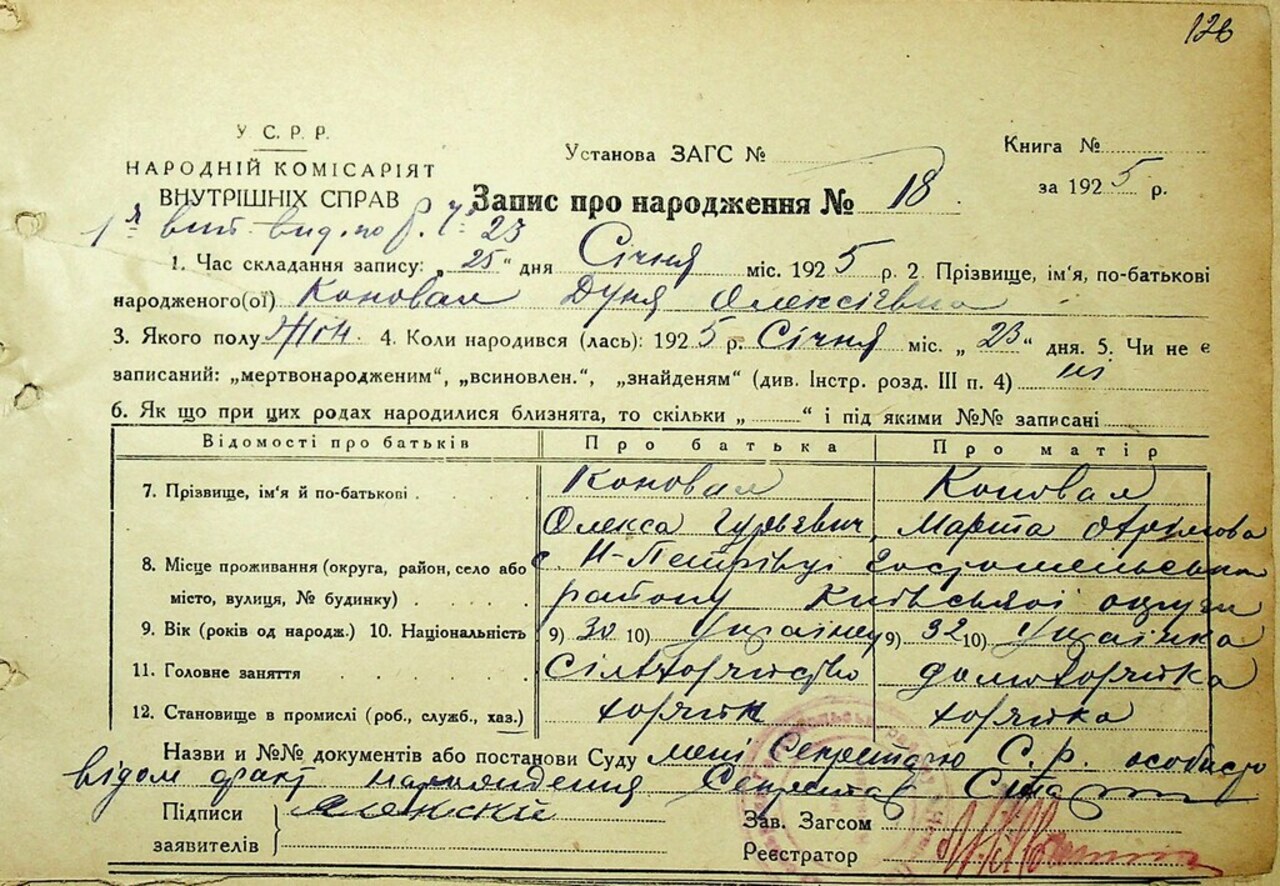 126
У. С. Р. Р.
НАРОДНІЙ КОМІСАРІЯТ
ВНУТРІШНІХ СПРАВ
Установа ЗАГС №
Книга №
за 1925 р.
Запис про народження № 18
23
1. Час складання запису: „25“ дня Січня міс. 1925 р. 2. Прізвище, ім'я, по-батькові
народженого(ої) Коновал Дуня Олексіївна
3. Якого полу Жін. 4. Коли народився (лась): 1925 р. Січня міс. „23“ дня. 5. Чи не є
записаний: „мертвонародженим“, „всиновлен.“, „знайденям“ (див. Інстр. розд. III п. 4) ні
6. Як що при цих родах народилися близнята, то скільки „ “ і під якими №№ записані
Відомості про батьків Про батька Про матір
7. Прізвище, ім'я й по-батькові Коновал Коновал
Олекса Гурьевич, Марта
8. Місце проживання (округа, район, село або с. Н-Петрівці Гостомельського
місто, вулиця, № будинку) району Київської округи
9. Вік (років од народж.) 10. Національність 9) 30 10) Українец 9) 32 10) Українка
11. Головне заняття
12. Становище в промислі (роб., служб., хаз.)
Назви и №№ документів або постанови Суду мені Секретарю С. р. особисто
відом факт народження Секретар
Підписи
заявителів
Зав. Загсом
Реєстратор